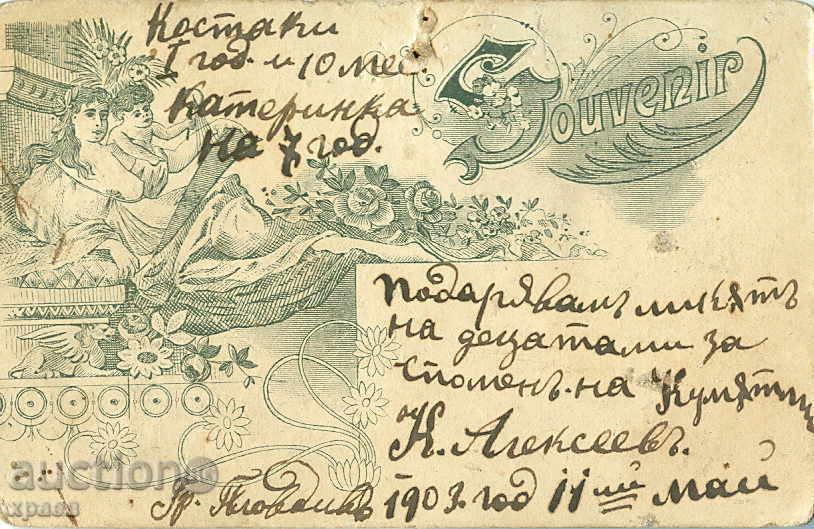 Костаки
I год. и 10 мес.
Катеринка
на 7 год.
Souvenir
Подарявамъ ликътъ
на децатами за
споменъ на
К. Алексеевъ.
Гр. Пловдивъ 1903 год 11ий май
auction